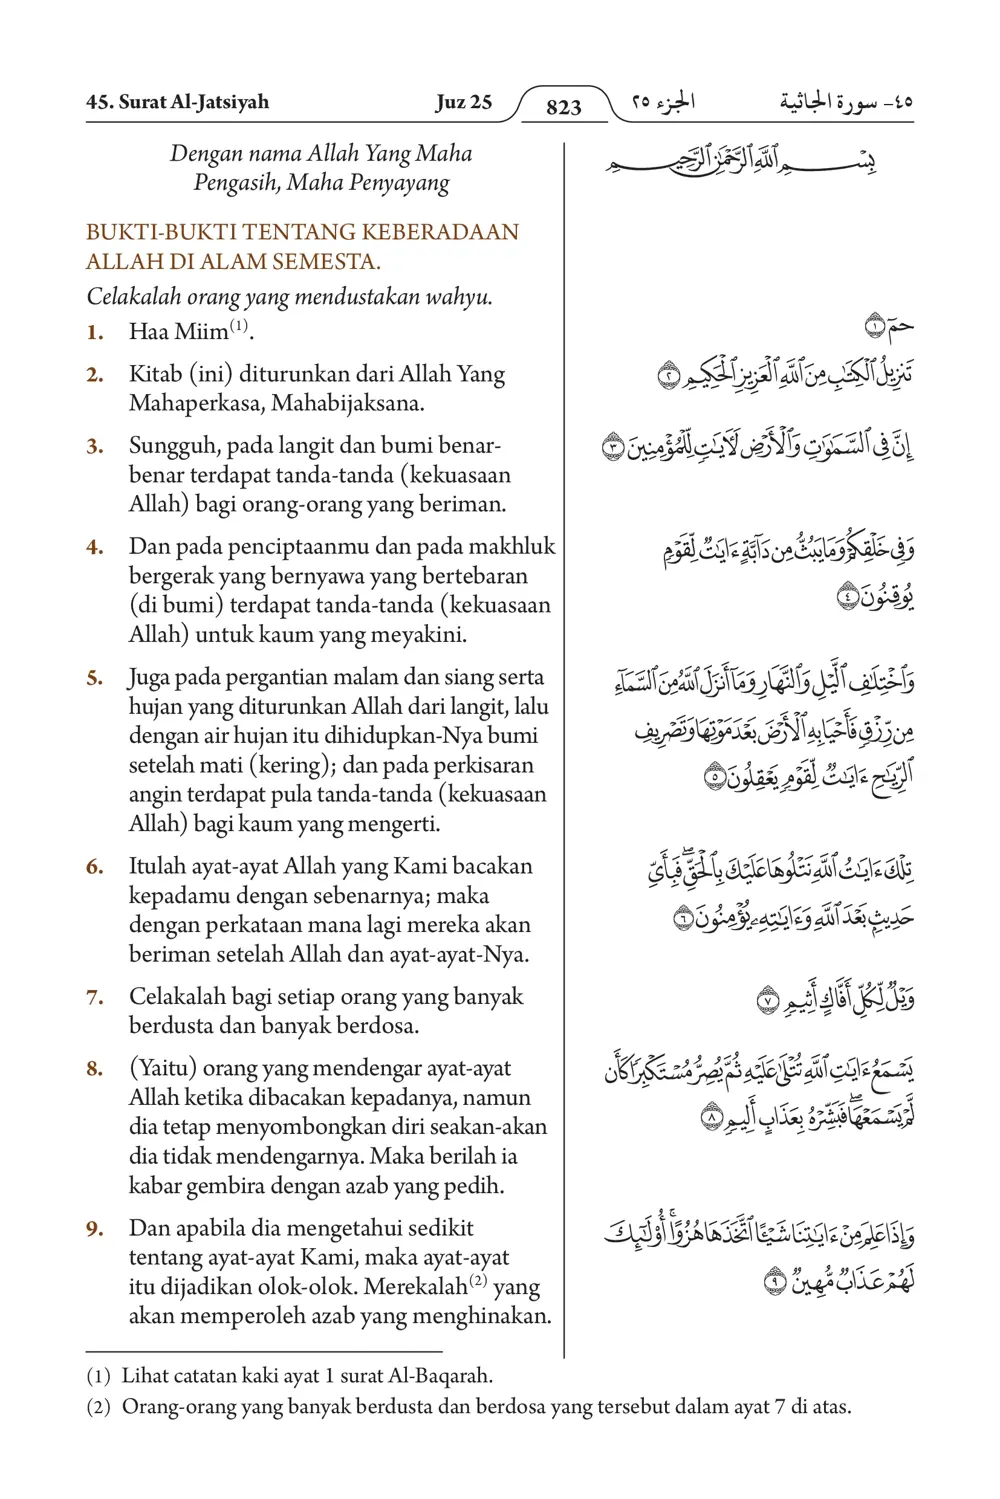 45. Surat Al-Jatsiyah
Juz 25
823
الجزء ٢٥
٤٥- سورة الجاثية
Dengan nama Allah Yang Maha
Pengasih, Maha Penyayang
BUKTI-BUKTI TENTANG KEBERADAAN
ALLAH DI ALAM SEMESTA.
Celakalah orang yang mendustakan wahyu.
1. Haa Miim(1).
2. Kitab (ini) diturunkan dari Allah Yang
Mahaperkasa, Mahabijaksana.
3. Sungguh, pada langit dan bumi benar-
benar terdapat tanda-tanda (kekuasaan
Allah) bagi orang-orang yang beriman.
4. Dan pada penciptaanmu dan pada makhluk
bergerak yang bernyawa yang bertebaran
(di bumi) terdapat tanda-tanda (kekuasaan
Allah) untuk kaum yang meyakini.
5. Juga pada pergantian malam dan siang serta
hujan yang diturunkan Allah dari langit, lalu
dengan air hujan itu dihidupkan-Nya bumi
setelah mati (kering); dan pada perkisaran
angin terdapat pula tanda-tanda (kekuasaan
Allah) bagi kaum yang mengerti.
6. Itulah ayat-ayat Allah yang Kami bacakan
kepadamu dengan sebenarnya; maka
dengan perkataan mana lagi mereka akan
beriman setelah Allah dan ayat-ayat-Nya.
7. Celakalah bagi setiap orang yang banyak
berdusta dan banyak berdosa.
8. (Yaitu) orang yang mendengar ayat-ayat
Allah ketika dibacakan kepadanya, namun
dia tetap menyombongkan diri seakan-akan
dia tidak mendengarnya. Maka berilah ia
kabar gembira dengan azab yang pedih.
9. Dan apabila dia mengetahui sedikit
tentang ayat-ayat Kami, maka ayat-ayat
itu dijadikan olok-olok. Merekalah(2) yang
akan memperoleh azab yang menghinakan.
بِسْمِ ٱللَّهِ ٱلرَّحْمَٰنِ ٱلرَّحِيمِ
حمٓ ١
تَنزِيلُ ٱلْكِتَٰبِ مِنَ ٱللَّهِ ٱلْعَزِيزِ ٱلْحَكِيمِ ٢
إِنَّ فِى ٱلسَّمَٰوَٰتِ وَٱلْأَرْضِ لَءَايَٰتٍ لِّلْمُؤْمِنِينَ ٣
وَفِى خَلْقِكُمْ وَمَا يَبُثُّ مِن دَآبَّةٍ ءَايَٰتٌ لِّقَوْمٍ
يُوقِنُونَ ٤
وَٱخْتِلَٰفِ ٱلَّيْلِ وَٱلنَّهَارِ وَمَآ أَنزَلَ ٱللَّهُ مِنَ ٱلسَّمَآءِ
مِن رِّزْقٍ فَأَحْيَا بِهِ ٱلْأَرْضَ بَعْدَ مَوْتِهَا وَتَصْرِيفِ
ٱلرِّيَٰحِ ءَايَٰتٌ لِّقَوْمٍ يَعْقِلُونَ ٥
تِلْكَ ءَايَٰتُ ٱللَّهِ نَتْلُوهَا عَلَيْكَ بِٱلْحَقِّ ۖ فَبِأَىِّ
حَدِيثٍۭ بَعْدَ ٱللَّهِ وَءَايَٰتِهِۦ يُؤْمِنُونَ ٦
وَيْلٌ لِّكُلِّ أَفَّاكٍ أَثِيمٍ ٧
يَسْمَعُ ءَايَٰتِ ٱللَّهِ تُتْلَىٰ عَلَيْهِ ثُمَّ يُصِرُّ مُسْتَكْبِرًا كَأَن
لَّمْ يَسْمَعْهَا ۖ فَبَشِّرْهُ بِعَذَابٍ أَلِيمٍ ٨
وَإِذَا عَلِمَ مِنْ ءَايَٰتِنَا شَيْـًٔا ٱتَّخَذَهَا هُزُوًا ۚ أُو۟لَٰٓئِكَ
لَهُمْ عَذَابٌ مُّهِينٌ ٩
(1) Lihat catatan kaki ayat 1 surat Al-Baqarah.
(2) Orang-orang yang banyak berdusta dan berdosa yang tersebut dalam ayat 7 di atas.